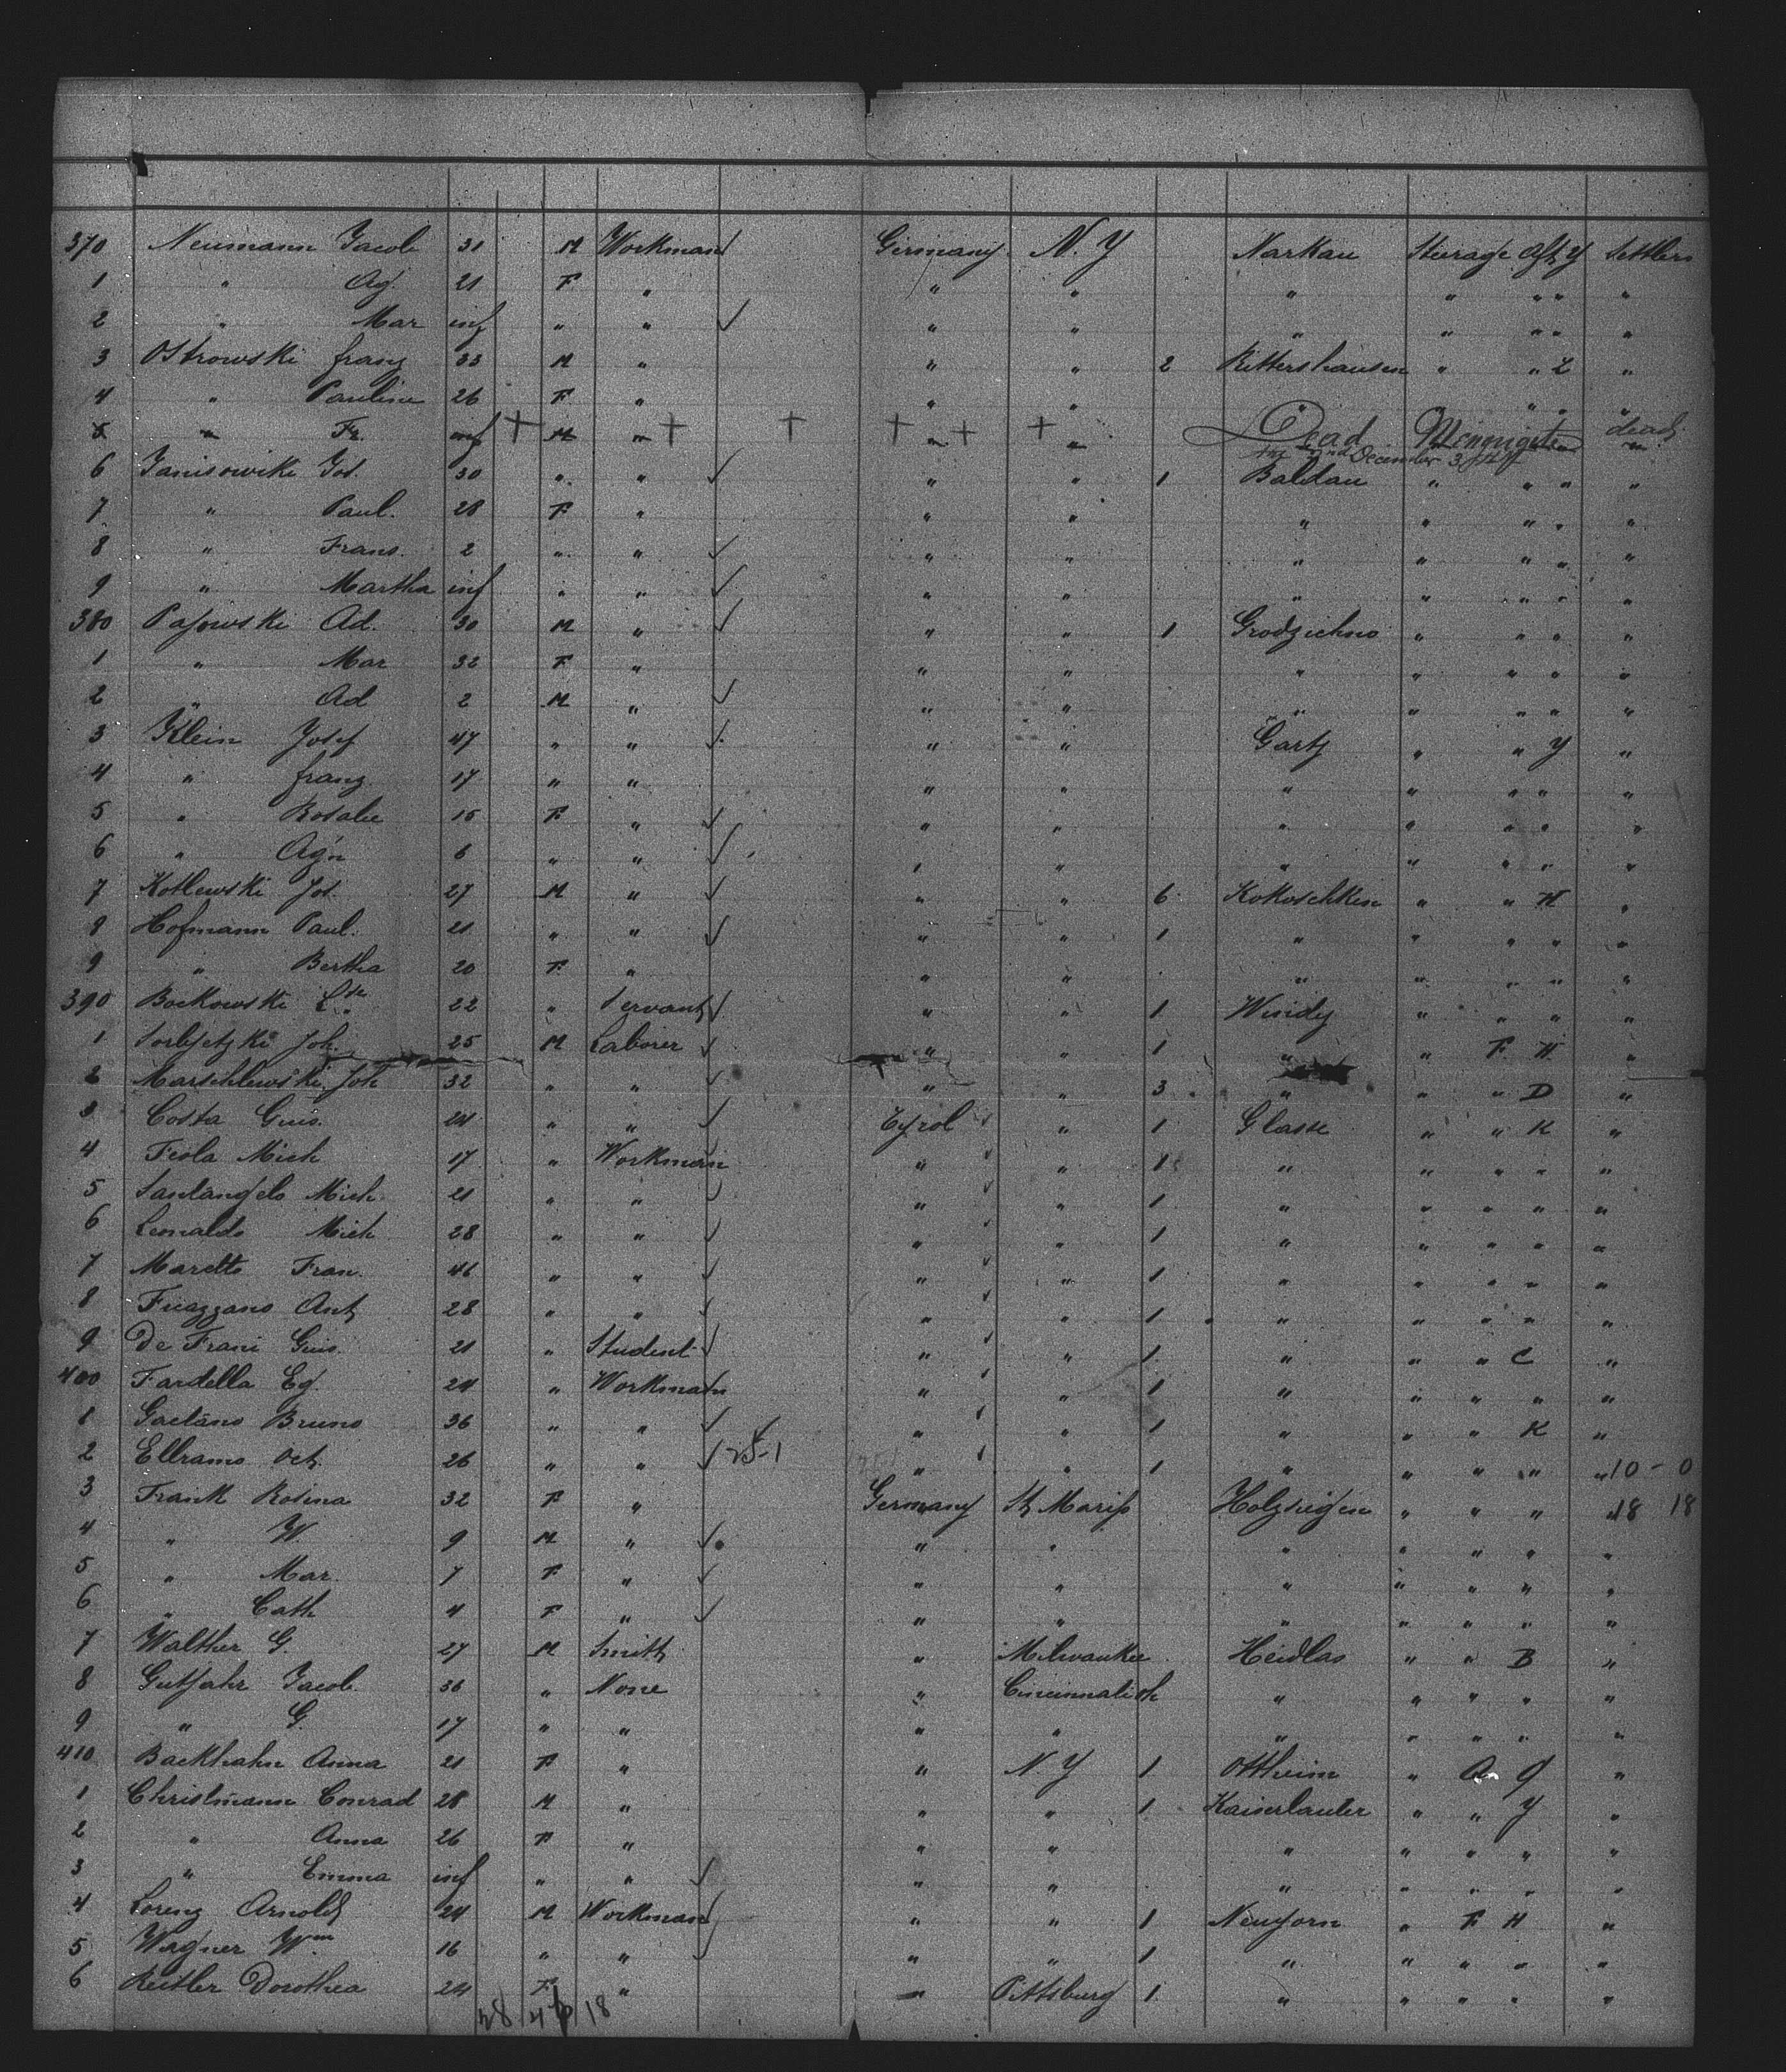 370 Neumann Jacob 31 M Workman Germany N. Y Narkau Steerage Aft Y Settlers
1 " Ag. 21 F " " " " " " " "
2 " Mar inf " " " " " " " " "
3 Ostrowski franz 33 M " " " 2 Rittershausen " " L "
4 " Pauline 26 F " " " " " " " "
5 " Fr. inf + M " + + + " + + " Dead Meningitis dead
2nd December
6 Janisowski Jos. 30 " " " " 1 Baldau " " " "
7 " Paul. 28 F " " " " " " " "
8 " Frans. 2 " " " " " " " " "
9 " Martha inf " " " " " " " " "
380 Pajowski Ad. 30 M " " " 1 Grodzichno " " " "
1 " Mar 32 F " " " " " " " "
2 " Ad 2 M " " " " " " " "
3 Klein Josef 47 " " " " Gartz " " Y "
4 " franz 17 " " " " " " " " "
5 " Rosalie 15 F " " " " " " " "
6 " Agn 6 " " " " " " " " "
7 Kotlewski Jos. 27 M " " " 6 Kokoschken " " H "
8 Hofmann Paul. 21 " " " " 1 " " " " "
9 " Bertha 20 F " " " " " " " "
390 Bockowski 22 " Servant " " 1 " " " "
1 Joh. 25 M Laborer " " 1 " " F H "
2 Marschlewski Joh 32 " " " " 3 " " " D "
3 Costa Gius. 24 " " Tyrol " 1 Glasse " " K "
4 Feola Mich 17 " Workman " " 1 " " " " "
5 Santangelo Mich 21 " " " " 1 " " " " "
6 Leonaldo Mich 28 " " " " 1 " " " " "
7 Maretto Fran. 46 " " " " 1 " " " " "
8 Ant 28 " " " " 1 " " " " "
9 De Frani Gius. 21 " Student " " 1 " " " C "
400 Fardella Eg. 24 " Workman " " 1 " " " " "
1 Gaetano Bruno 36 " " " " 1 " " " K "
2 Ellramo Oct. 26 " " 25-1 " " 1 " " " " " 10 - 0
3 Frank Rosina 32 F " Germany St Marys " " " " 18 18
4 " W. 9 M " " " " " " " "
5 " Mar. 7 F " " " " " " " "
6 " Cath 4 F " " " " " " " "
7 Walther G. 27 M Smith " Milwaukee Heidlas " " B "
8 Gutjahr Jacob 36 " None " Cincinnati Oh " " " " "
9 " G. 17 " " " " " " " " "
410 Backhahn Anna 21 F " " N. Y 1 Ottheim " "
1 Christmann Conrad 28 M " " " 1 Kaiserlauter " " Y "
2 " Anna 26 F " " " " " " " "
3 " Emma inf " " " " " " " " "
4 Lorenz Arnold 24 M Workman " " 1 " F H "
5 Wagner Wm 16 " " " " 1 " " " " "
6 Reitler Dorothea 24 F " " Pittsburg 1 " " " " "
28 18